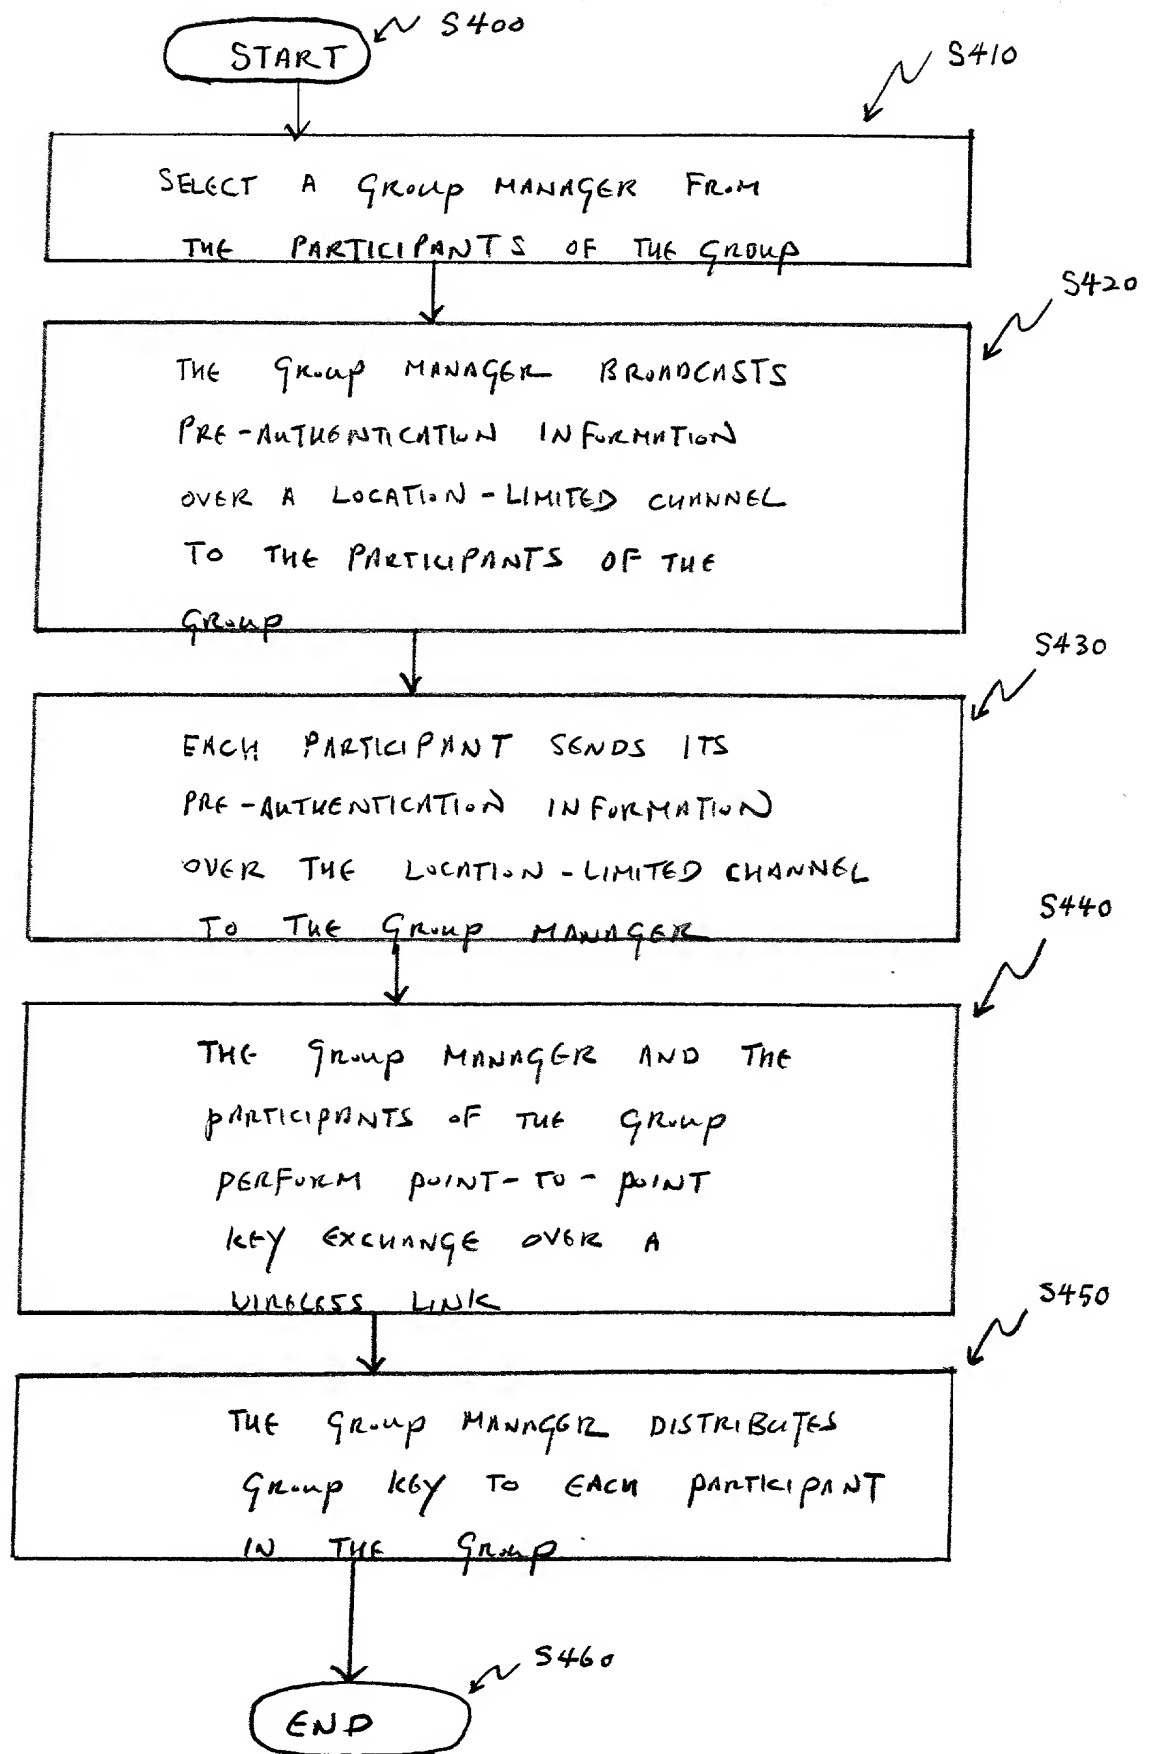 START
S400
S410
SELECT A GROUP MANAGER FROM
THE PARTICIPANTS OF THE GROUP
S420
THE GROUP MANAGER BROADCASTS
PRE-AUTHENTICATION INFORMATION
OVER A LOCATION-LIMITED CHANNEL
TO THE PARTICIPANTS OF THE
GROUP
S430
EACH PARTICIPANT SENDS ITS
PRE-AUTHENTICATION INFORMATION
OVER THE LOCATION-LIMITED CHANNEL
TO THE GROUP MANAGER
S440
THE GROUP MANAGER AND THE
PARTICIPANTS OF THE GROUP
PERFORM POINT-TO-POINT
KEY EXCHANGE OVER A
WIRELESS LINK
S450
THE GROUP MANAGER DISTRIBUTES
GROUP KEY TO EACH PARTICIPANT
IN THE GROUP
S460
END